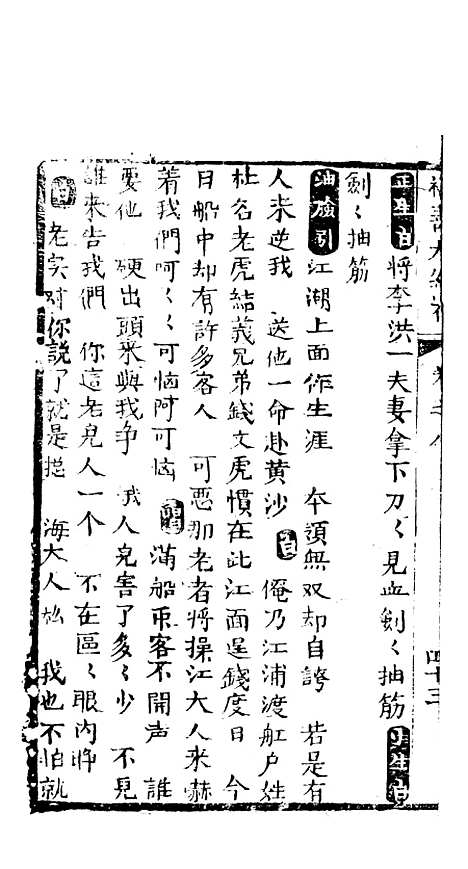 正生白將李洪一夫妻拿下刀〻見血剣〻抽筋 夫生白
剣〻抽筋
油臉引江湖上面作生涯 夲領無双却自誇 若是有
人来逆我 送他一命赴黄沙 白 俺乃江浦渡舡户姓
杜名老虎結義兄弟錢文虎慣在此江面逞錢度日 今
日船中却有許多客人 可惡那老者將操江大人来赫
着我們呵〻〻可恼阿可恼 滿船商客不開声 誰
要他 硬出頭来與我争 我人児害了多〻少 不見
誰来告我們 你這老児人一个 不在區〻眼内睁
白 老实对你說了就是 海大人 我也不怕就
四十三